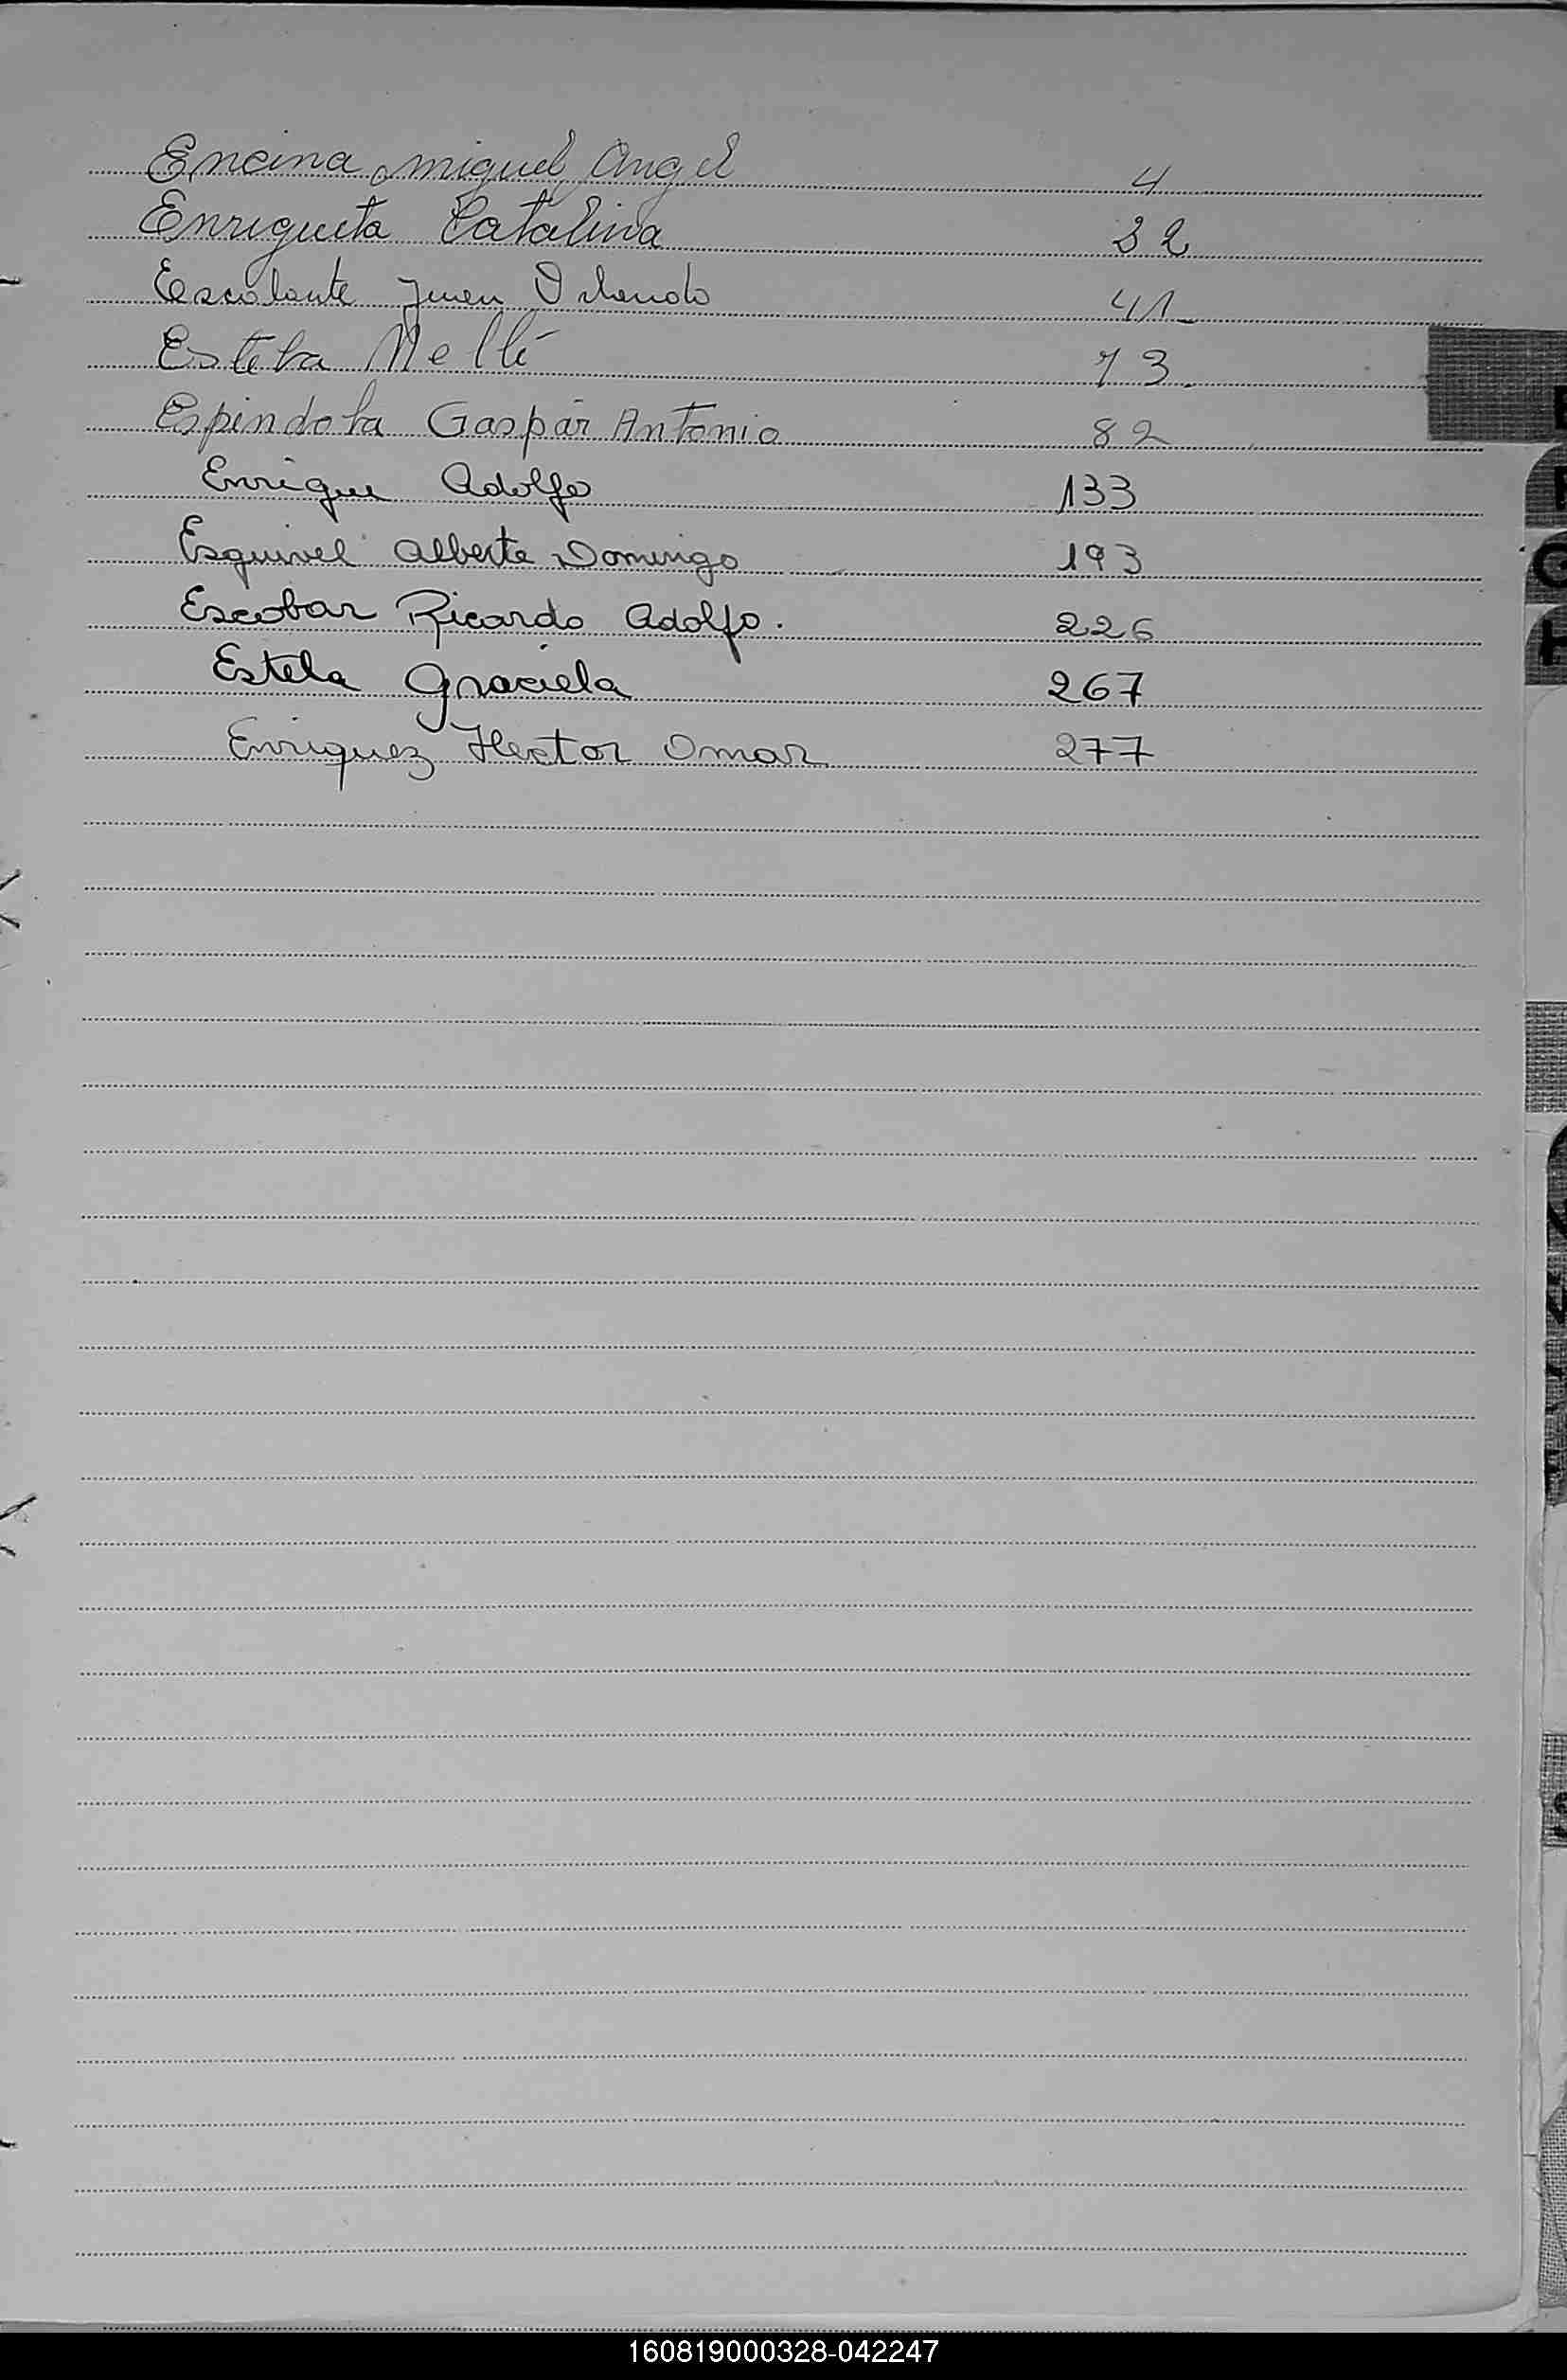 Encina Miguel Angel 4
Enriqueta Catalina 32
Escalante Juan Orlando 41-
Estela Melli 73.
Espindola Gaspar Antonio 82
Enrique Adolfo 133
Esquivel Alberto Domingo 193
Escobar Ricardo Adolfo. 226
Estela Graciela 267
Enriquez Hector Omar 277
G
H
S
160819000328-042247